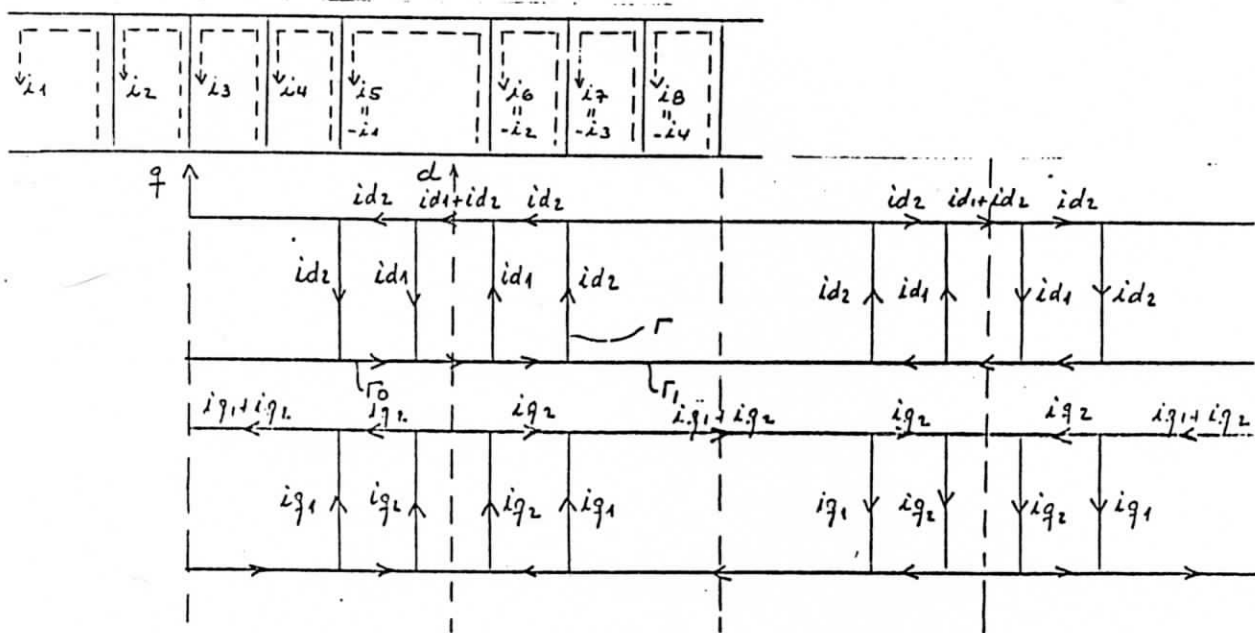 i1 i2 i3 i4 i5 i6 i7 i8
= = = =
-i1 -i2 -i3 -i4
q d
id2 id1+id2 id2 id2 id1+id2 id2
id2 id1 id1 id2 id2 id1 id1 id2
r
r0 r1
iq1+iq2 iq2 iq2 iq1+iq2 iq2 iq2 iq1+iq2
iq1 iq2 iq2 iq1 iq1 iq2 iq2 iq1